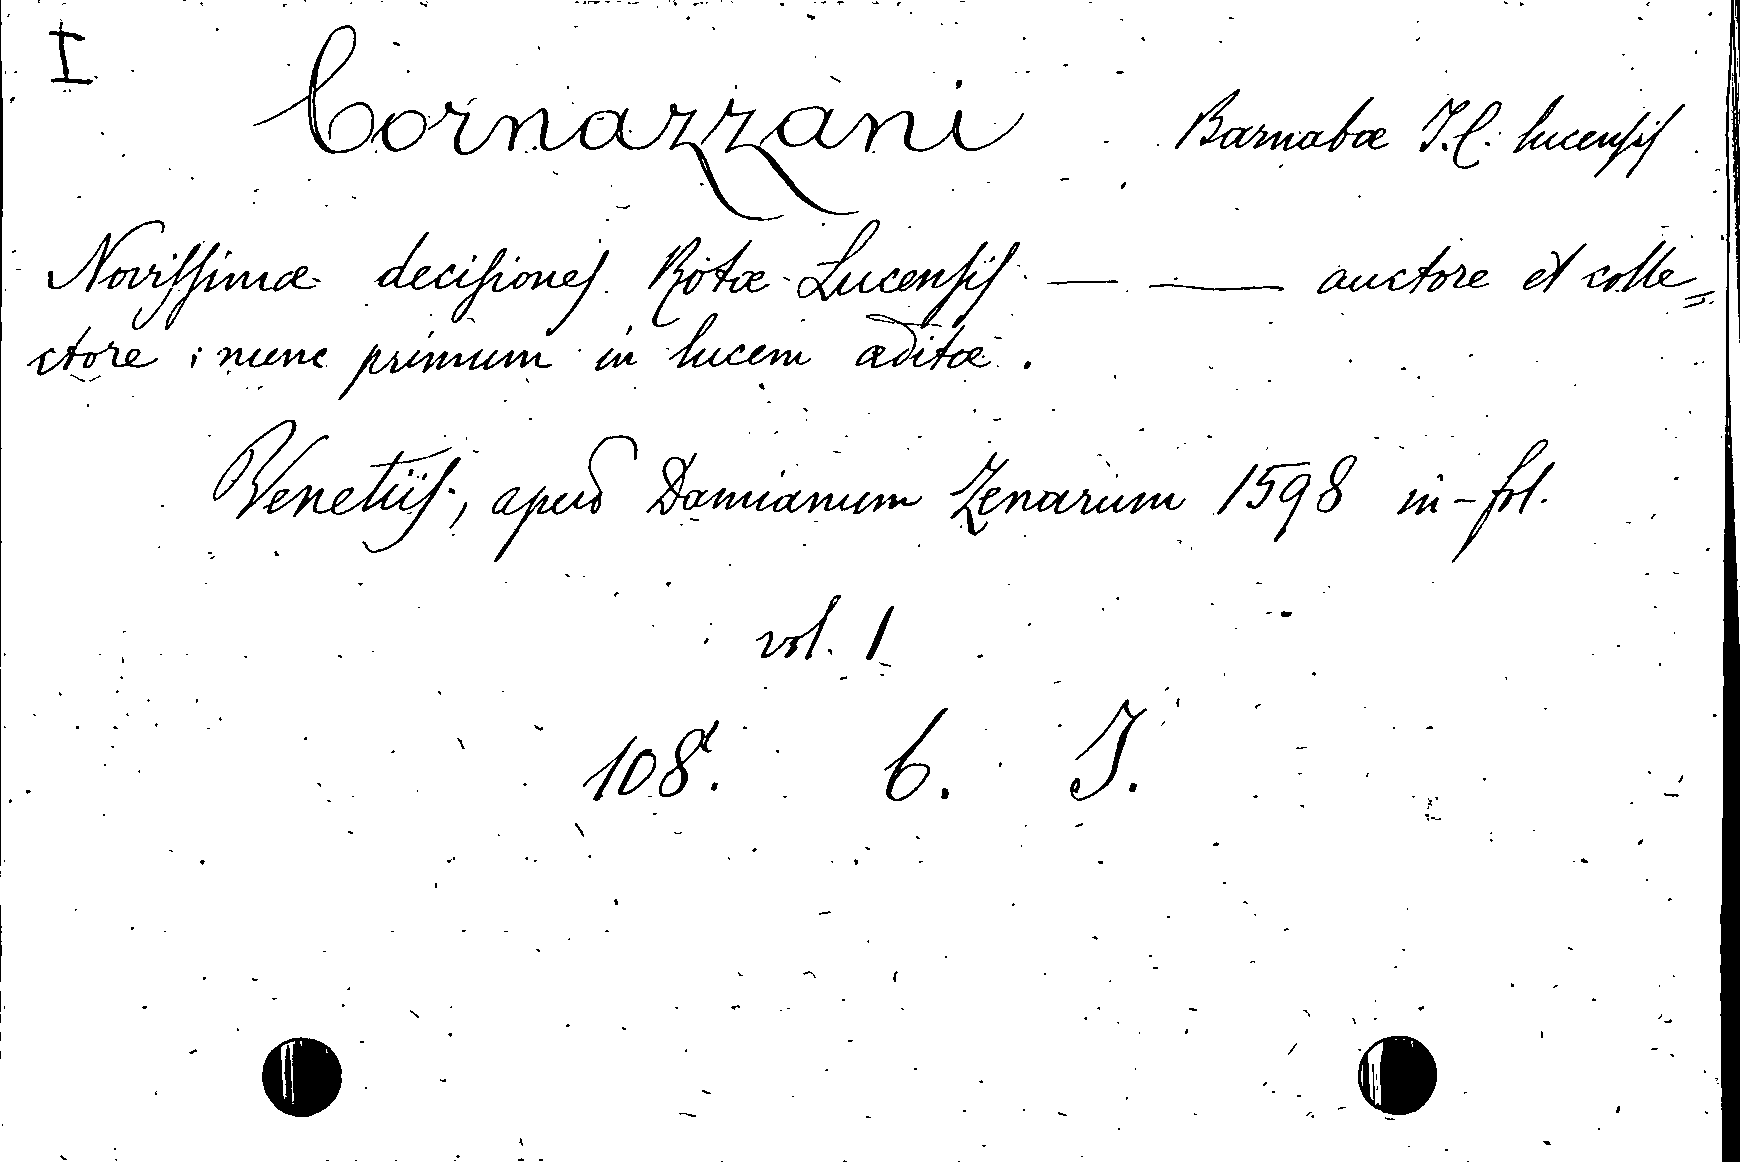 I
Cornazzani Barnabæ J.C. lucensis
Novissimæ decisiones Rotæ Lucensis — — auctore et colle=
ctore ; nunc primum in lucem æditæ.
Venetiis, apud Damianum Zenarum 1598 in-fol.
vol. 1
108. 6. J.